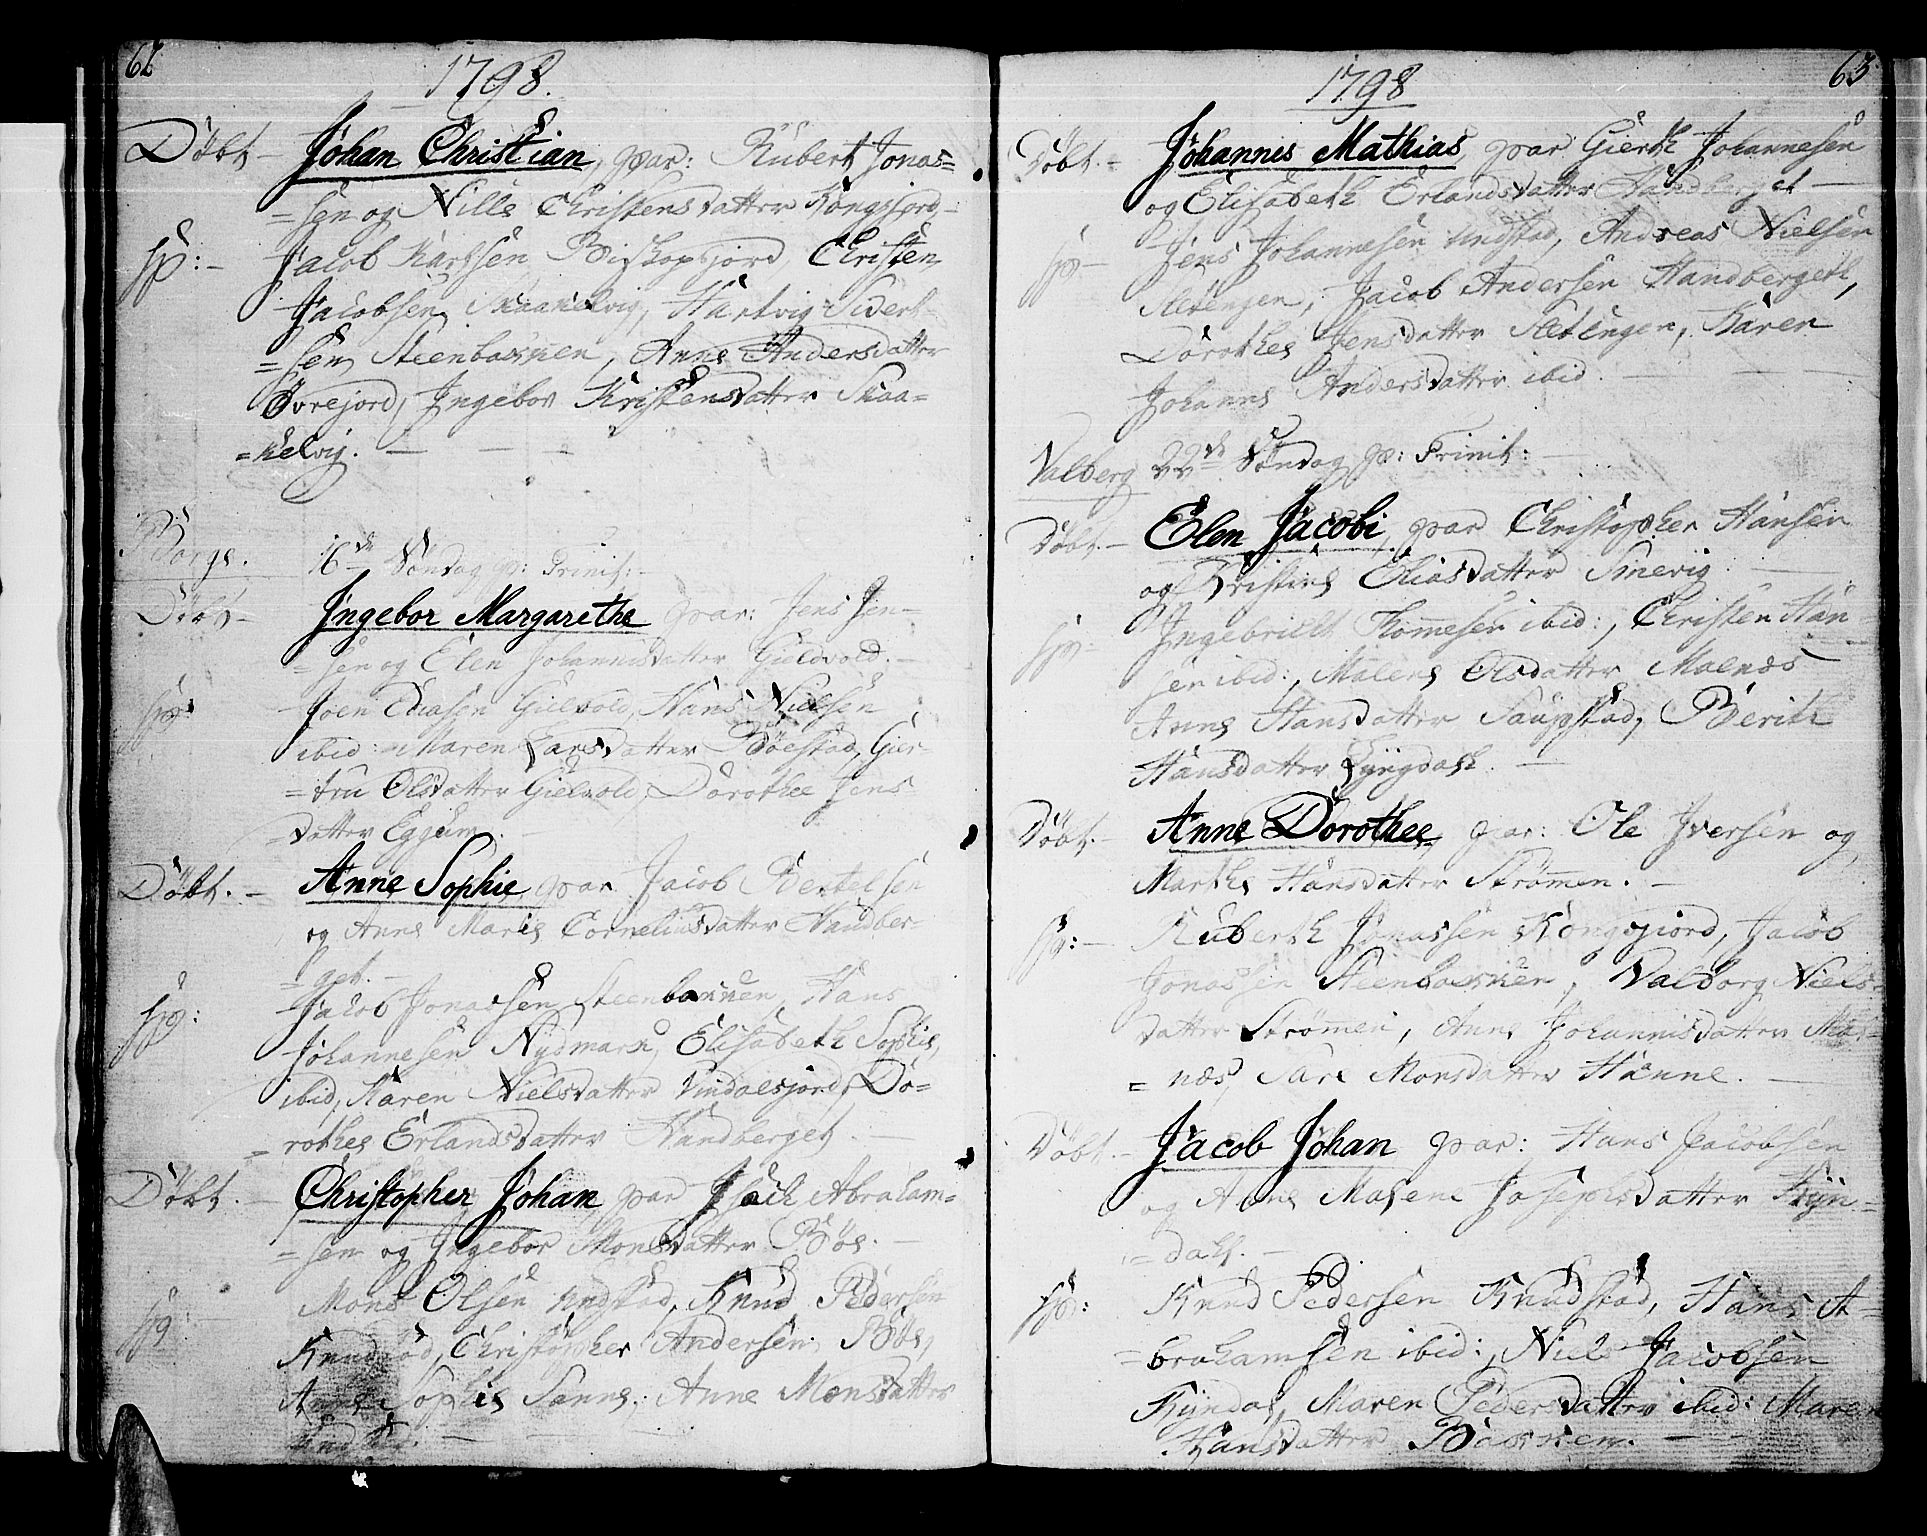 62
1798.
Döbt - Johan Christian, par: Kubert Jonas=
=sen og Nille Christensdatter Kongsjord
sp: - Jacob Kartsen Biskopsjord, Christen
Jacobsen Skaankelvig, Hartvig Sivert=
=sen Steenbasnen, Anne Andersdatter
Övrejord, Ingebor Kristensdatter Skaa=
=kelvig.
Borge. 16de Söndag p: Trinit: -
Döbt - Ingebor Margarethe par: Jens Jen=
=sen og Elen Johannisdatter Gieldvold. -
sp: Joen Eliasen Gielvold, Hans Nielsen
ibid: Maren Larsdatter Böestad, Gier=
=tru Olsdatter Gielvold, Dorothee Jens
datter Eggum.
Döbt. - Anne Sophie, par Jacob Bertelsen
og Anne Marie Corneliusdatter Handber=
=get. -
sp: Jacob Jonassen Steenbasnen, Hans
Johannesen Nydmark, Elisabeth Sophie,
ibid, Karen Nielsdatter Vindalsjord, Do=
=rothee Erlandsdatter Handberget. -
Döbt. - Christopher Johan, par Isach Abraham=
=sen og Ingebor Monsdatter Böe. -
sp: Mons Olsen Undstad, Knud Pedersen
Knudstad, Christopher Andersen Böe,
Anne Sophie Sanne, Anne Monsdatter
63
1798
Döbt. - Johannis Mathias, par Gierth Johannesen
og Elisabeth Erlandsdatter Handberget -
sp - Jens Johannesen Undstad, Andreas Nielsen
Sletengen, Jacob Andersen Handbergeth,
Dorothea Jensdatter Sletengen, Karen
Johanne Andersdatter ibid.
Valberg 22de Söndag p: Trinit: -
Döbt. - Elen Jacobi, par Christopher Hansen
og Kristine Eliasdatter Smevig. -
sp: Ingebrilt Thomesen ibid:, Christen Han=
sen ibid:, Malene Olsdatter Malnæs
Anne Hansdatter Saupstad, Berith
Hansdatter Lyngdahl. -
Döbt. - Anne Dorothee, par: Ole Iversen og
Marthe Hansdatter Strömen. -
sp: - Kuberth Jonassen Kongsjord, Jacob
Jonassen Steenbasnen, Valborg Niels=
datter Strömen, Anne Johannisdatter Mar=
=næs, Sare Monsdatter Hanne. -
Döbt. - Jacob Johan par: Hans Jacobsen
og Anne Malene Josepsdatter Kyn=
=dahl. -
sp: Knud Pedersen Knudstad, Hans A=
=brahamsen ibid:, Niels Jacobsen
Kyndal, Maren Pedersdatter ibid: Maren
Hansdatter Basnen. -